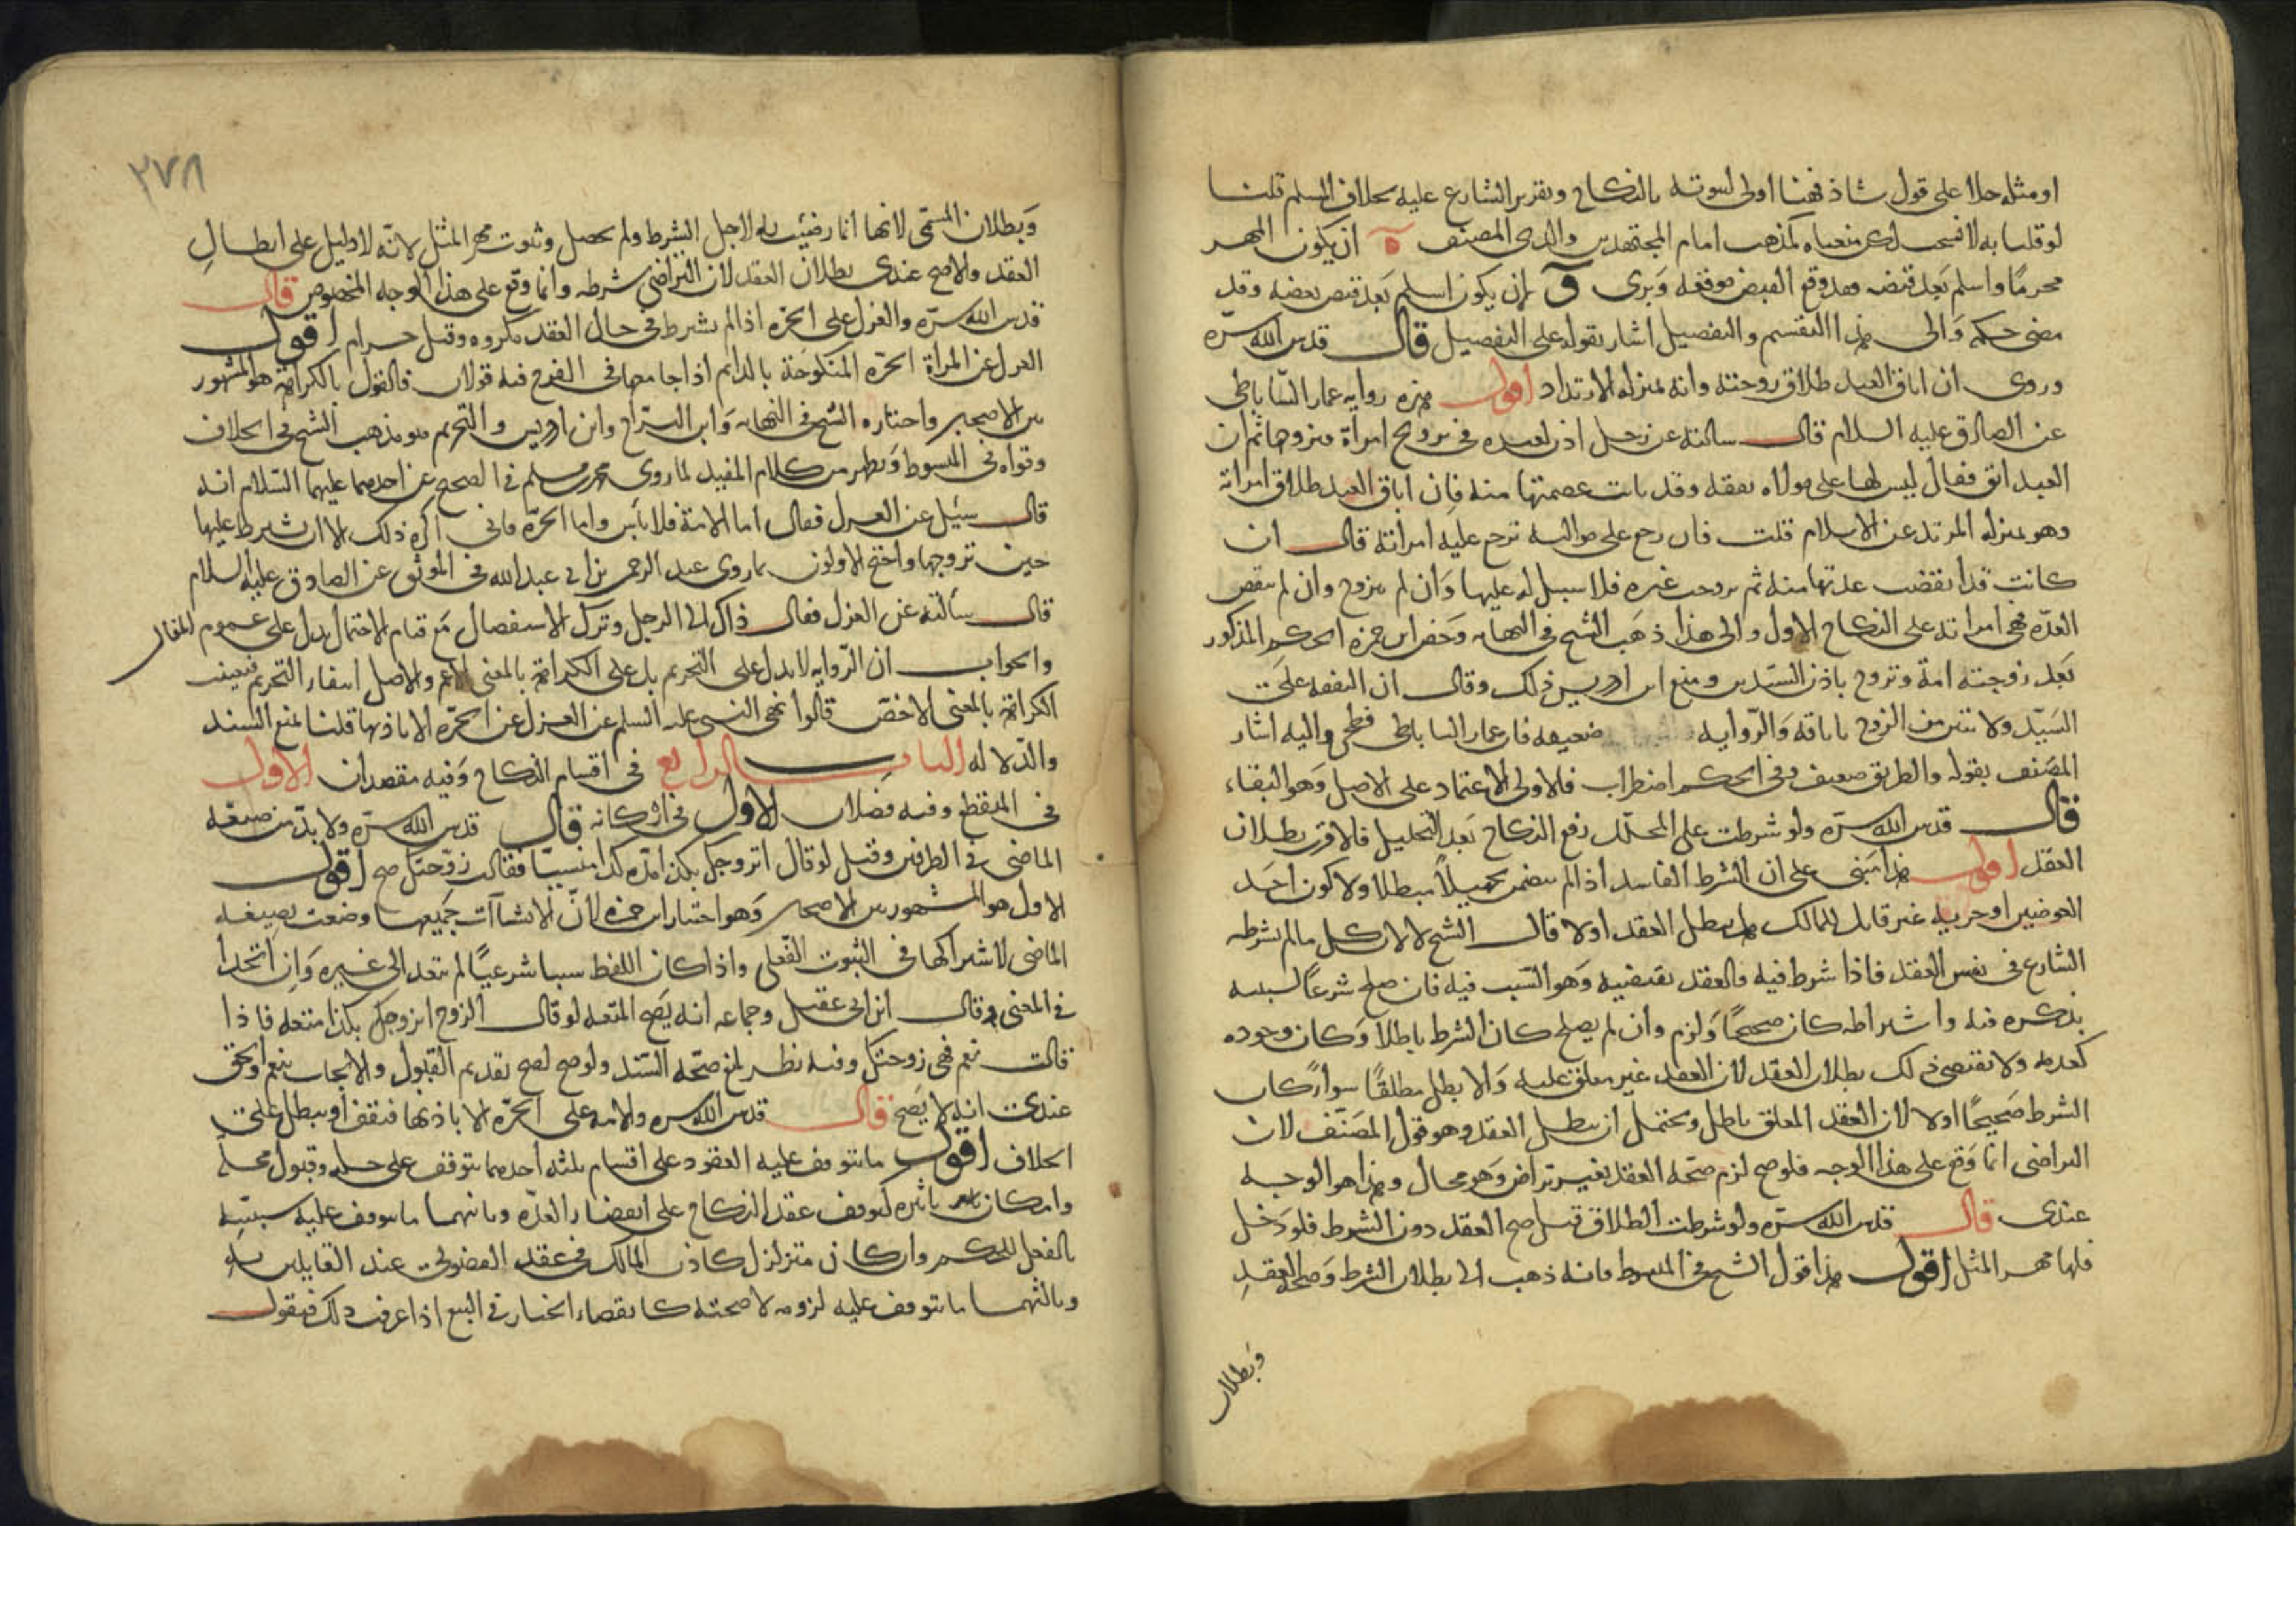 او مثله حلالا على قول شاذ فهنا اولى لثبوته بالنكاح وبتقرير الشارع عليه بخلاف المسلم قلنا
لو قلنا به لانسحب لكن منعناه كمذهب امام المجتهدين والدى المصنف ه ان يكون المهر
محرمًا واسلم بَعد قبضه فقد وقع القبض موقعه وَبرى وَ ان يكون اسلم بَعد قبض بعضه وقد
مضى حكمه وَالى هذا التقسيم والتفصيل اشار بقوله على التفصيل قال قدس الله سرّه
وروى ان اباق العبد طلاق زوجته وانه بمنزله الارتداد اقول هذه روايه عمار السّاباطى
عن الصادق عليه السلام قال سالته عن رجل اذن لعبده فى تزويج امراة فتزوجها ثم ان
العبد ابق فقال ليس لها على مولاه نفقه وقد بانت عصمتها منه فإن اباق العبد طلاق امراته
وهو بمنزله المرتد عن الاسلام قلت فان رجع على مواليه ترجع عليه امراته قال ان
كانت قد انقضت عدتها منه ثم تزوجت غيره فلا سبيل له عليها وَان لم تتزوج وان لم تنقص
العدّه فهى امراته على النكاح الاول والى هذا ذهَب الشيخ فى النهايه وَخص ابن حمزه الحكم المذكور
بَعد زوجته امة وتزوج باذن السيّدين ومنع ابن ادريس ذلك وقال ان النفقه علَى
السَيّد ولا تبين من الزوج باباقه وَالرّوايه ضعيفه فان عمار الساباطى فطحى واليه اشار
المصَنف بقوله والطريق ضعيف وفى الحكم اضطراب فالاولى الاعتماد على الاصل وَهو البقاء
قال قدس الله سرّه ولو شرطت على المحلّل رفع النكاح بَعد التحليل فالاقرب بطلان
العقد اقول هذا مَبنى على ان الشرط الفاسد اذا لم يتضمن تجهيلاً مبطلا ولا كون احَد
العوضين او جزيه غير قابل للتمالك هل يبطل العقد اولا قال الشيخ لا لان كل ما لم يشرطه
الشارع فى نفس العقد فاذا شرط فيه فالعقد يقتضيه وَهو السّبب فيه فان صلح شرعًا لسببيه
بذكره فيه واشتراطه كان صحيحًا وَلزم وان لم يصلح كان الشرط باطلا وَكان وجوده
كعدمه ولا يقتضى ذلك بطلان العقد لان العقد غير معلق عليه وَالا بطل مطلقًا سوآء كان
الشرط صَحيحًا اولا لان العقد المعلق باطل ويحتمل ان يبطل العقد وهو قول المصَنّف لان
التراضى انما وَقع على هذا الوجه فلو صح لزم صحّه العقد بغير تراض وَهو محال وهذا هو الوجه
عندى قال قدس الله سرّه ولو شرطت الطلاق قيل صح العقد دون الشرط فلو دَخل
فلها مهر المثل اقول هذا قول الشيخ فى المبسوط فانه ذهب الى بطلان الشرط وَصحه العقدِ
وَبطلان
٣٧٨
وَبطلان المسمّى لانها انما رضيَت به لاجل الشرط ولم يحصل وثبوت مهر المثل لانّه لا دليل على ابطالِ
العقد والاصح عندى بطلان العقد لان التراضى شرطه وانما وقع على هذا الوجه المخصوص قال
قدس الله سرّه والعزل على الحرّه اذا لم يشرط فى حال العقد مكروه وقيل حرام اقول
العزل عن المراة الحرّه المنكوحَة بالدايم اذا جامعها فى الفرج فيه قولان فالقول بالكراهة هو المشهور
بين الاصحاب واختاره الشيخ فى النهايه وَابن البرّاج وابن ادريس والتحريم هو مذهب الشيخ فى الخلاف
وقواه فى المبسوط وَيظهر من كلام المفيد لما روى محمد بن مسلم فى الصحيح عن احدهما عليهما السّلام انه
قال سئِل عن العزل فقال اما الامة فلا بأس واما الحرّه فانى اكره ذلك الا ان يشرط عليها
حين تزوجها واحتج الاولون بما روى عبد الرحمن بن ابى عبد الله فى الموثق عن الصادق عليه السلام
قال سَألته عن العزل فقال ذاك الى الرجل وترك الاستفصال مَع قيام الاحتمال يدل على عموم المقال
والجواب ان الرّوايه لا تدل على التحريم بل على الكراهة بالمعنى الاعم والاصل انتفاء التحريم فتعيّنت
الكراهة بالمعنى الاخصّ قالوا نهى النبى عليه السلم عن العزل عن الحرّه الا باذنها قلنا نمنع السند
والدّلاله الباب الرابع فى اقسام النكاح وَفيه مقصدان الاول
فى المنقطع وفيه فصَلان الاول فى اركانه قال قدس الله سرّه ولا بدّ من صيغه
الماضى فى الطرفين وقيل لو قال اتزوجك بكذا مدّه كذا متسببًا فقالت زوّجتك صح اقول
الاول هو المشهور بين الاصحاب وَهو اختيار ابن حمزه لانّ الانشاآت جَميعها وضعت بصيغه
الماضى لاشتراكها فى الثبوت الفعلى واذا كان اللفظ سببا شرعيًا لم يتعد الى غيره وَان اتحدا
فى المعنى وقال ابن ابى عقيل وجماعه انه يَصح المتعه لو قال الزوج اتزوجك بكذا متعه فاذا
قالت نعم فهى زوجتك وفيه نظر لمنع صحّه السّند ولو صح لصح تقديم القبول والايجاب بنعم والحق
عندى انه لا يَصح قال قدس الله سره والامه على الحرّه الا باذنها فتقف او يبطل على
الخلاف اقول ما يتوقف عليه العقود على اقسام ثلثه أحدهما يتوقف على حله وقبول محله
وامكان تاثيره كتوقف عقد النكاح على انقضاء العدّه وثانيهما ما يتوقف عليه سببيّته
بالفعل للحكم وان كان متزلزل كاذن المالك فى عقد الفضولى عند القايلين به
وثالثهما ما يتوقف عليه لزومه لا صحته كانقضاء الخيار فى البيع اذا عرفت ذلك فنقول